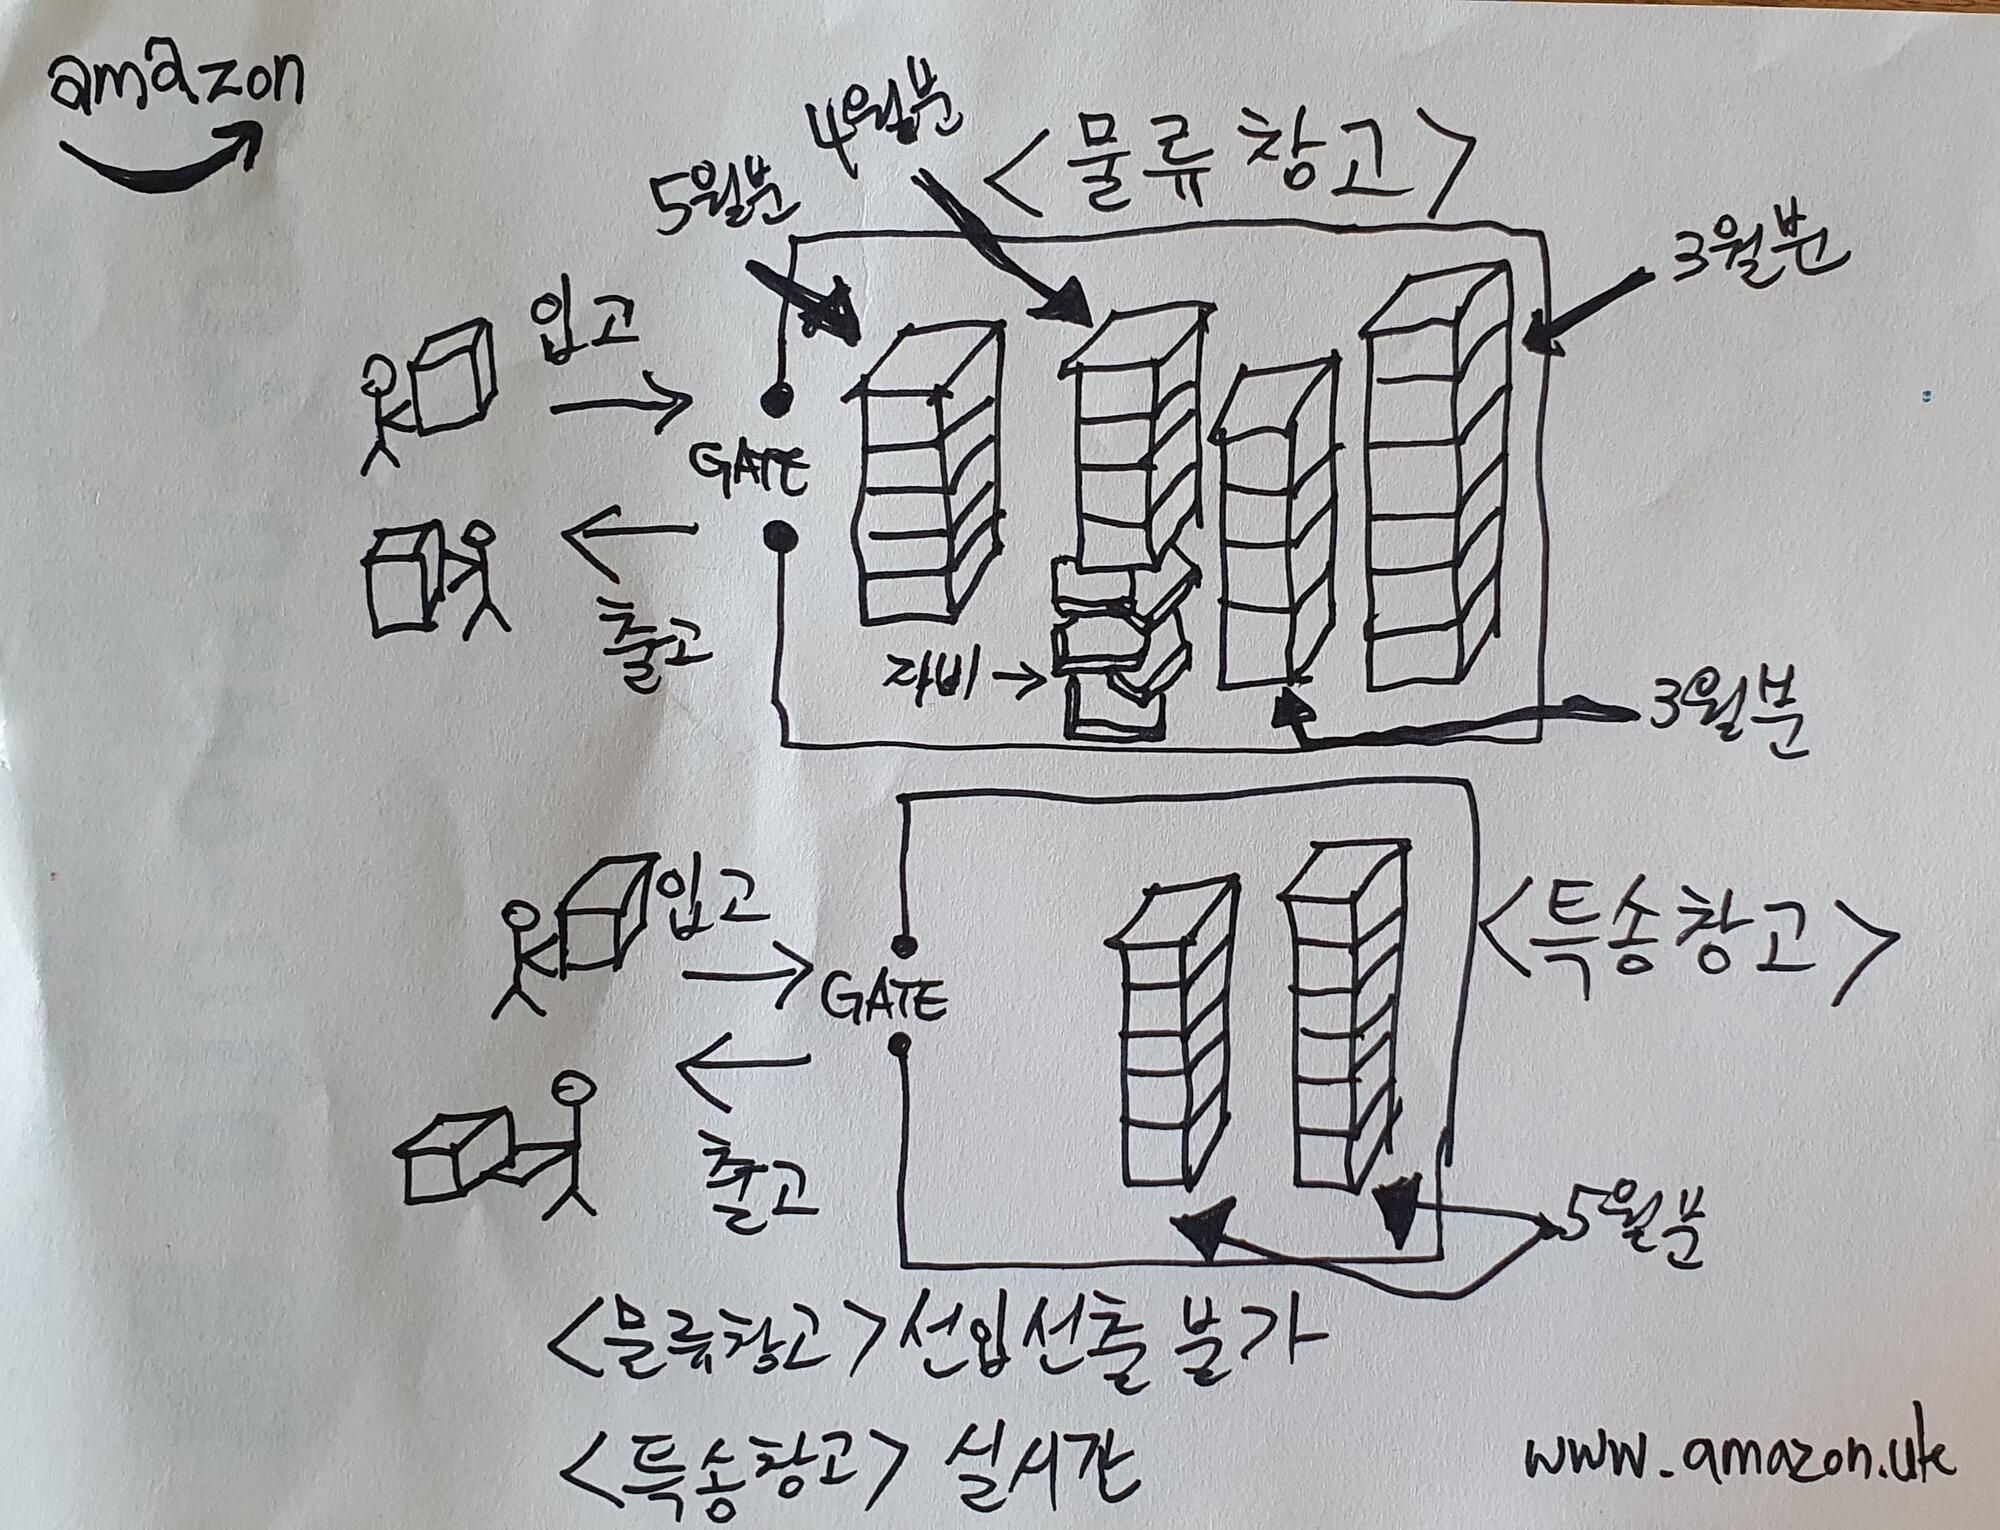 amazon
4월분
<물류창고>
5월분
3월분
입고
GATE
출고
자비 →
3월분
입고
<특송창고>
GATE
출고
5월분
<물류창고> 선입선출 불가
<특송창고> 실시간
www.amazon.uk